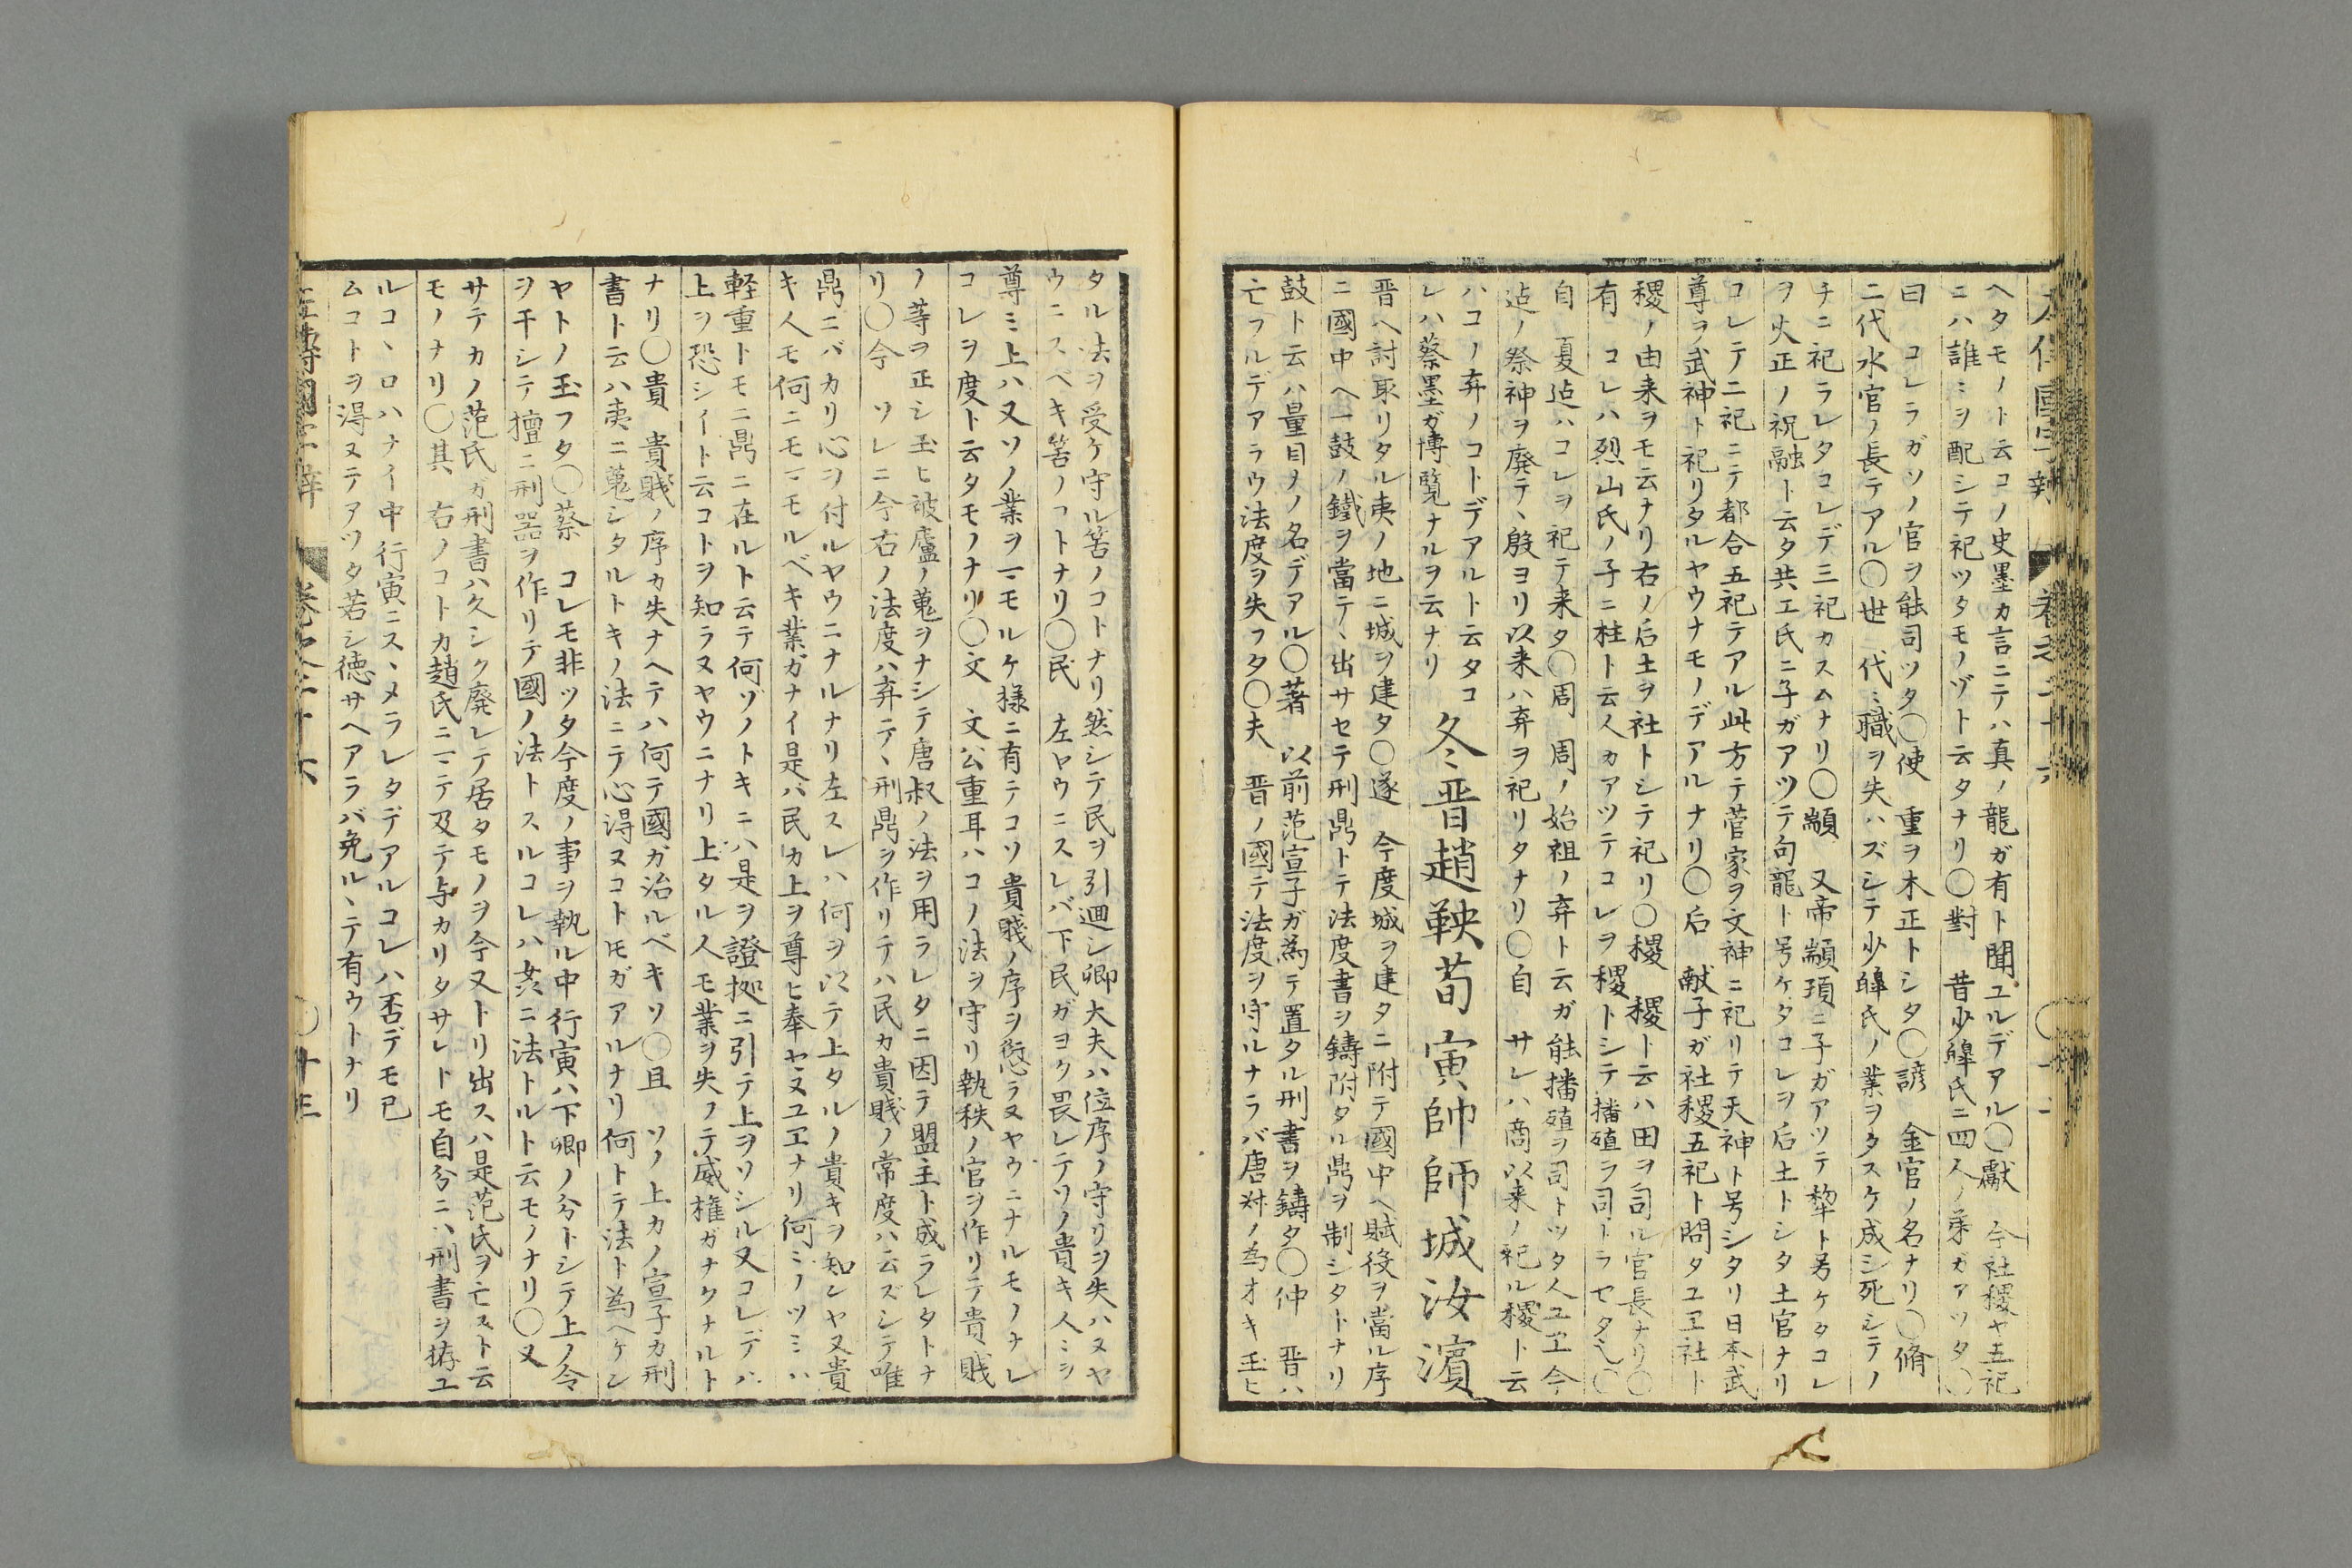 ヘタモノト云コノ史墨カ言ニテハ真ノ龍ガ有ト聞ユルデアル〇獻　今社稷ヤ五祀
ニハ誰ミヲ配シテ祀ツタモノヅト云タナリ〇對　昔少皞氏ニ四人ノ弟ガアツタ〇
曰　コレラガソノ官ヲ能司ツタ〇使　重ヲ木正トシタ〇該　金官ノ名ナリ〇脩
二代水官ノ長テアル〇世　代ミ職ヲ失ハズシテ少皞氏ノ業ヲタスケ成シ死シテノ
チニ祀ラレタコレデ三祀カスムナリ〇顓　又帝顓頊ニ子ガアツテ犂ト号ケタコレ
ヲ火正ノ祝融ト云タ共工氏ニ子ガアツテ句龍ト号ケタコレヲ后土トシタ土官ナリ
コレテ二祀ニテ都合五祀テアル此方テ菅家ヲ文神ニ祀リテ天神ト号シタリ日本武
尊ヲ武神ト祀リタルヤウナモノデアルナリ〇后　献子ガ社稷五祀ト問タユヱ社ト
稷ノ由来ヲモ云ナリ右ノ后土ヲ社トシテ祀リ〇稷　稷ト云ハ田ヲ司ル官長ナリ〇
有　コレハ烈山氏ノ子ニ柱ト云人カアツテコレヲ稷トシテ播殖ヲ司トラセタ〇
自　夏迠ハコレヲ祀テ来タ〇周　周ノ始祖ノ弃ト云ガ能播殖ヲ司トツタ人ユヱ今
迠ノ祭神ヲ廃テヽ殷ヨリ以来ハ弃ヲ祀リタナリ〇自　サレハ商以来ノ祀ル稷ト云
ハコノ弃ノコトデアルト云タコ
レハ蔡墨ガ博覧ナルヲ云ナリ
冬晋趙鞅荀寅帥師城汝濱
晋ヘ討取リタル夷ノ地ニ城ヲ建タ〇遂　今度城ヲ建タニ附テ國中ヘ賦役ヲ當ル序
ニ國中ヘ一鼓ノ鐵ヲ當テヽ出サセテ刑鼎トテ法度書ヲ鑄附タル鼎ヲ制シタトナリ
鼓ト云ハ量目ノ名デアル〇著　以前范宣子ガ為テ置タル刑書ヲ鑄タ〇仲　晋ハ
亡フルデアラウ法度ヲ失フタ〇夫　晋ノ國テ法度ヲ守ルナラバ唐叔ノ為オキ玉ヒ
タル法ヲ受ケ守ル筈ノコトナリ然シテ民ヲ引廻シ卿大夫ハ位序ノ守リヲ失ハヌヤ
ウニスベキ筈ノコトナリ〇民　左ヤウニスレバ下民ガヨク畏レテソノ貴キ人ミヲ
尊ミ上ハ又ソノ業ヲ一モルケ様ニ有テコソ貴賤ノ序ヲ愆ラヌヤウニナルモノナレ
コレヲ度ト云タモノナリ〇文　文公重耳ハコノ法ヲ守リ執秩ノ官ヲ作リテ貴賎
ノ等ヲ正シ玉ヒ被廬ノ蒐ヲナシテ唐叔ノ法ヲ用ラレタニ因テ盟主ト成ラレタトナ
リ〇今　ソレニ今右ノ法度ハ弃テヽ刑鼎ヲ作リテハ民カ貴賎ノ常度ハ云ズシテ唯
鼎ニバカリ心ヲ付ルヤウニナルナリ左スレハ何ヲ以テ上タルノ貴キヲ知シヤ又貴
キ人モ何ニモ一モルベキ業ガナイ是ハ民カ上ヲ尊ヒ奉ヤヌユヱナリ何ミノツミハ
軽重トモニ鼎ニ在ルト云テ何ゾノトキニハ是ヲ證拠ニ引テ上ヲソシル又コレデハ
上ヲ恐シイト云コトヲ知ラヌヤウニナリ上タル人モ業ヲ失フテ威権ガナクナルト
ナリ〇貴　貴賤ノ序カ失ナヘテハ何テ國ガ治ルベキソ〇且　ソノ上カノ宣子カ刑
書ト云ハ夷ニ蒐シタルトキノ法ニテ心得ヌコトモガアルナリ何トテ法ト為ヘケン
ヤトノ玉フタ〇蔡　コレモ非ツタ今度ノ事ヲ執ル中行寅ハ下卿ノ分トシテ上ノ令
ヲ干シテ擅ニ刑器ヲ作リテ國ノ法トスルコレハ姦ニ法トルト云モノナリ〇又
サテカノ范氏ガ刑書ハ久シク廃レテ居タモノヲ今又トリ出スハ是范氏ヲ亡スト云
モノナリ〇其　右ノコトカ趙氏ニ一テ及テ与カリタサレトモ自分ニハ刑書ヲ拵ユ
ルコヽロハナイ中行寅ニスヽメラレタデアルコレハ否デモ已
ムコトヲ得ヌテアツタ若シ徳サヘアラバ免ルヽテ有ウトナリ
左傳國字辯　巻之二十六　〇廿三